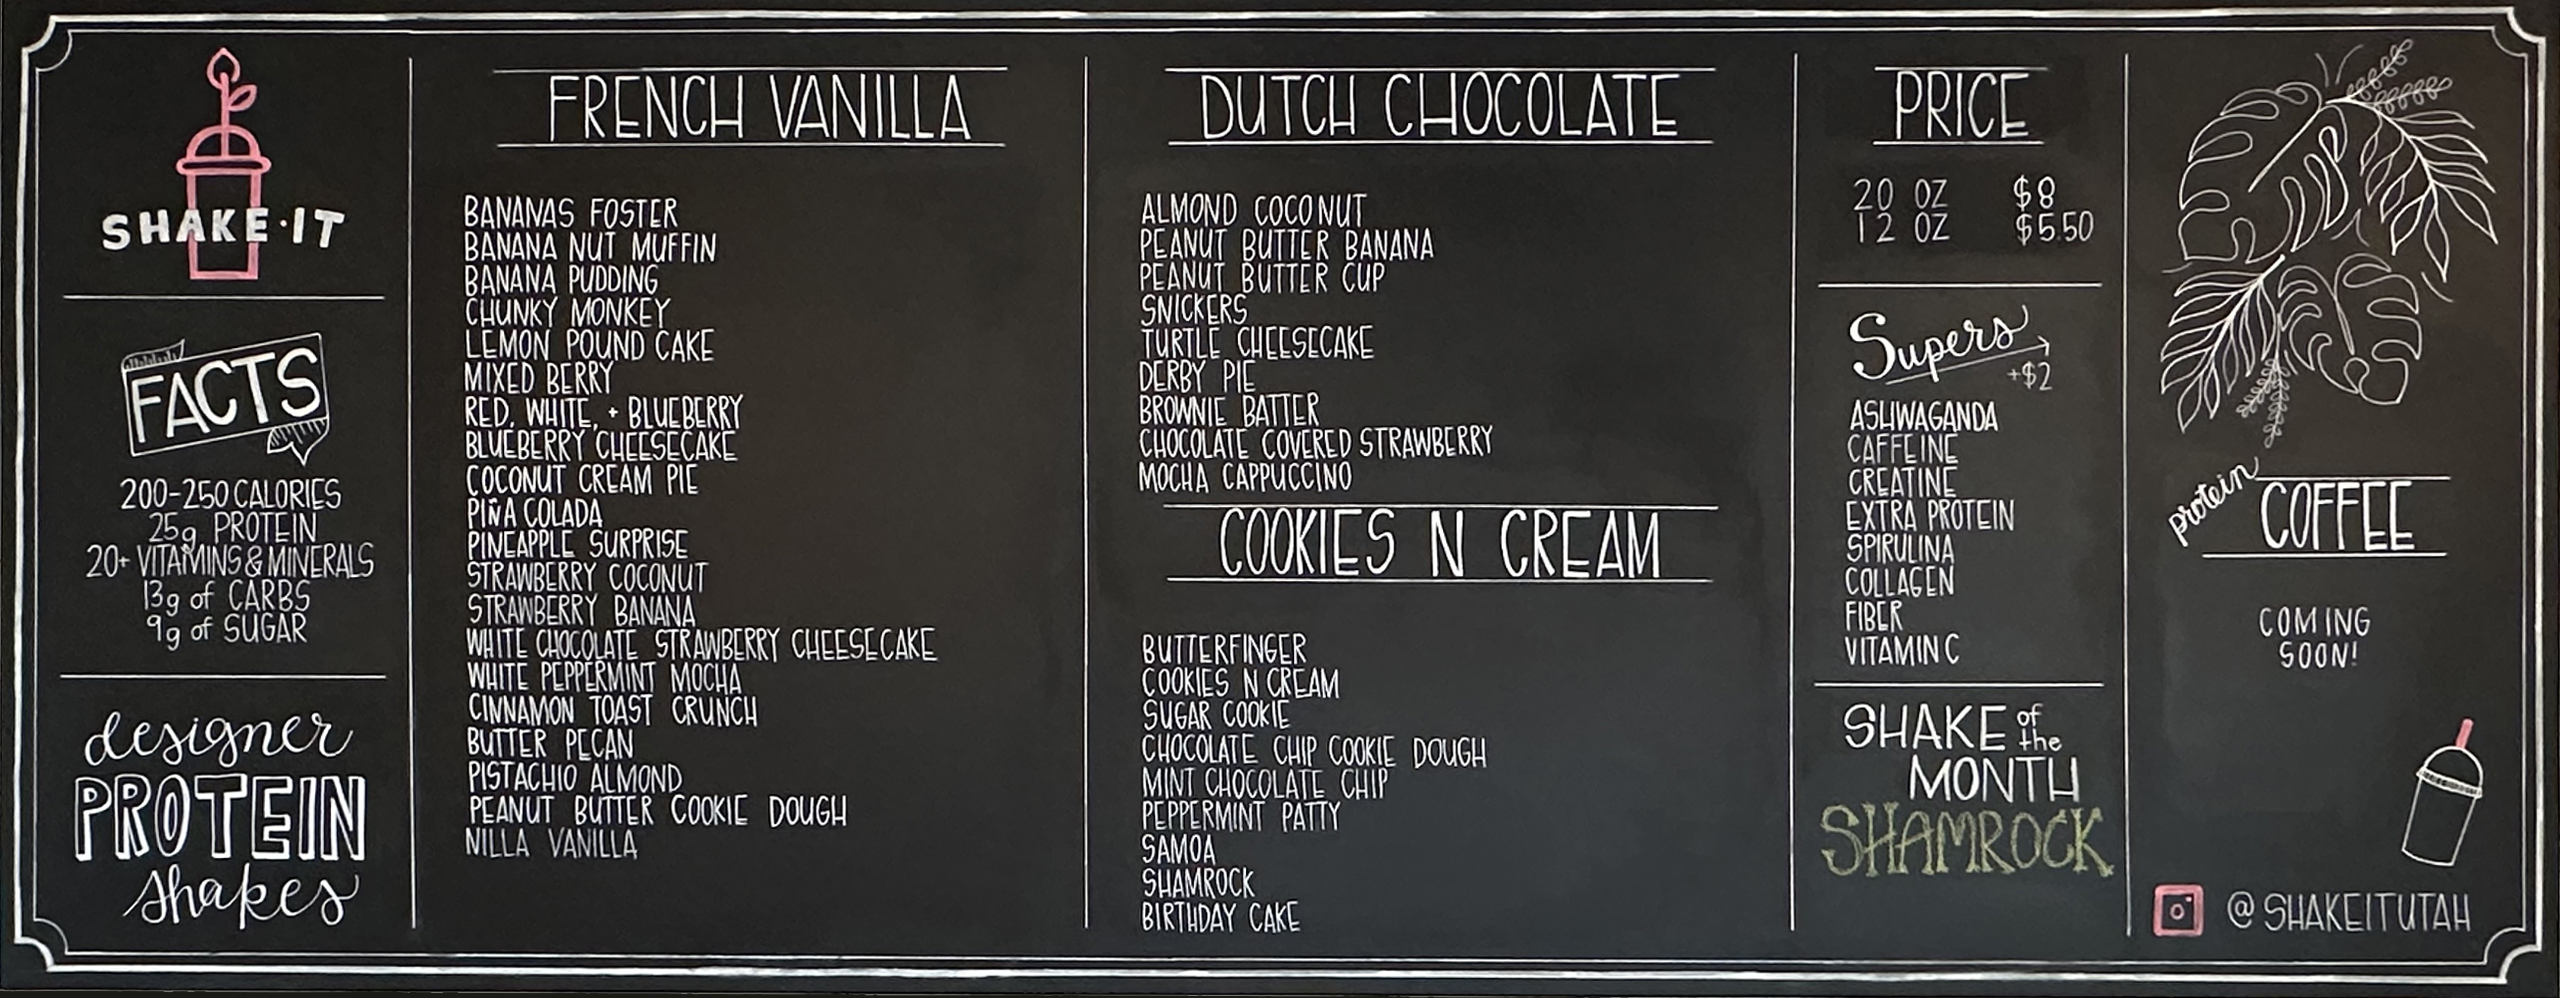 SHAKE·IT
FACTS
200-250 CALORIES
25g PROTEIN
20+ VITAMINS & MINERALS
13g of CARBS
9g of SUGAR
designer
PROTEIN
shakes
FRENCH VANILLA
BANANAS FOSTER
BANANA NUT MUFFIN
BANANA PUDDING
CHUNKY MONKEY
LEMON POUND CAKE
MIXED BERRY
RED, WHITE, + BLUEBERRY
BLUEBERRY CHEESECAKE
COCONUT CREAM PIE
PIÑA COLADA
PINEAPPLE SURPRISE
STRAWBERRY COCONUT
STRAWBERRY BANANA
WHITE CHOCOLATE STRAWBERRY CHEESECAKE
WHITE PEPPERMINT MOCHA
CINNAMON TOAST CRUNCH
BUTTER PECAN
PISTACHIO ALMOND
PEANUT BUTTER COOKIE DOUGH
NILLA VANILLA
DUTCH CHOCOLATE
ALMOND COCONUT
PEANUT BUTTER BANANA
PEANUT BUTTER CUP
SNICKERS
TURTLE CHEESECAKE
DERBY PIE
BROWNIE BATTER
CHOCOLATE COVERED STRAWBERRY
MOCHA CAPPUCCINO
COOKIES N CREAM
BUTTERFINGER
COOKIES N CREAM
SUGAR COOKIE
CHOCOLATE CHIP COOKIE DOUGH
MINT CHOCOLATE CHIP
PEPPERMINT PATTY
SAMOA
SHAMROCK
BIRTHDAY CAKE
PRICE
20 OZ $8
12 OZ $5.50
Supers
+$2
ASHWAGANDA
CAFFEINE
CREATINE
EXTRA PROTEIN
SPIRULINA
COLLAGEN
FIBER
VITAMIN C
SHAKE of the
MONTH
SHAMROCK
protein COFFEE
COMING
SOON!
@SHAKEITUTAH